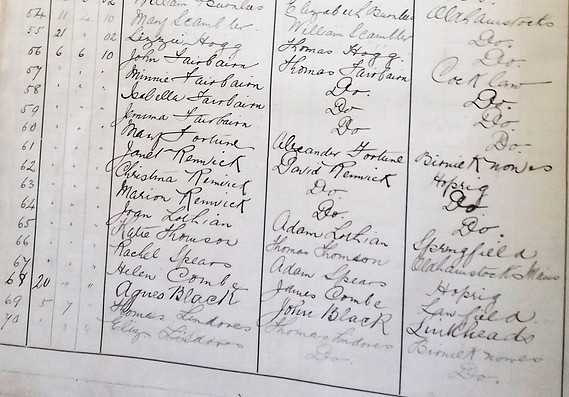 William Burnlees Elizabeth Burnlees Oldhamstocks
54 11 4 10 Mary Scambler William Scambler Do.
55 21 " 02 Lizzie Hogg Thomas Hogg. Do.
56 6 6 10 John Fairbairn Thomas Fairbairn Cocklaw
57 " " " Minnie Fairbairn Do. Do.
58 " " " Isabella Fairbairn Do Do.
59 " " " Jemima Fairbairn Do Do.
60 " " " Mary Fortune Alexander Fortune Birnieknowes
61 " " " Janet Renwick David Renwick Hoprig
62 " " " Christina Renwick Do. Do
63 " " " Marion Renwick Do. Do.
64 " " " Joan Lothian Adam Lothian Springfield
65 " " " Katie Thomson Thomas Thomson Oldhamstocks Mains
66 " " " Rachel Spears Adam Spears Hoprig
67 " " " Helen Combe James Combe Lawfield.
68 20 " " Agnes Black John Black Linkheads
69 5 7 " Thomas Lindores Thomas Lindores Birnieknowes
70 " " " Eliza Lindores Do. Do.